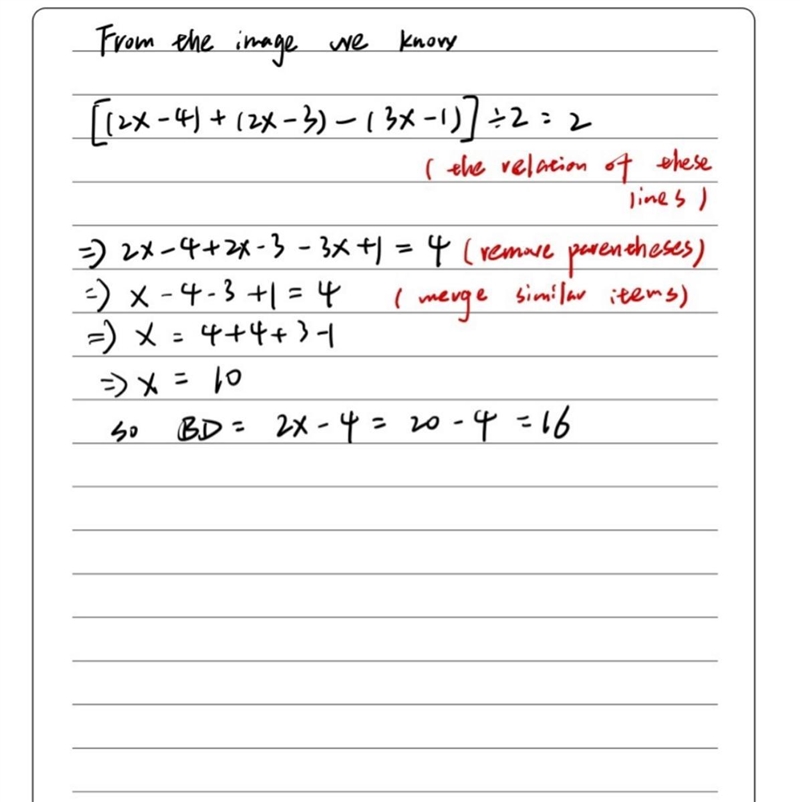 From the image we know
[(2x-4)+(2x-3)-(3x-1)]÷2=2
(the relation of these
lines)
=> 2x-4+2x-3-3x+1=4 (remove parentheses)
=> x-4-3+1=4 (merge similar items)
=> x=4+4+3-1
=> x=10
so BD=2x-4=20-4=16